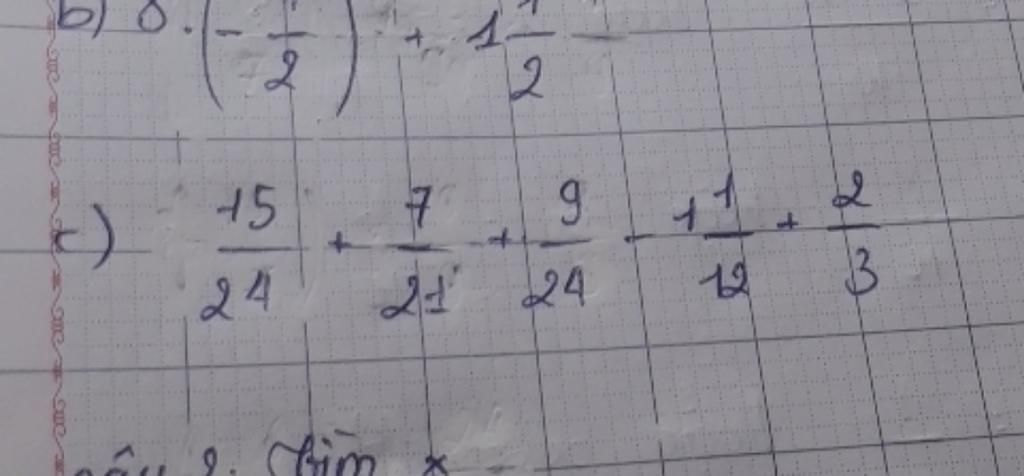 b) 8.(-1/2) + 1 1/2
c) 15/24 + 7/21 + 9/24 - 1 1/12 + 2/3
câu 2. Tìm x